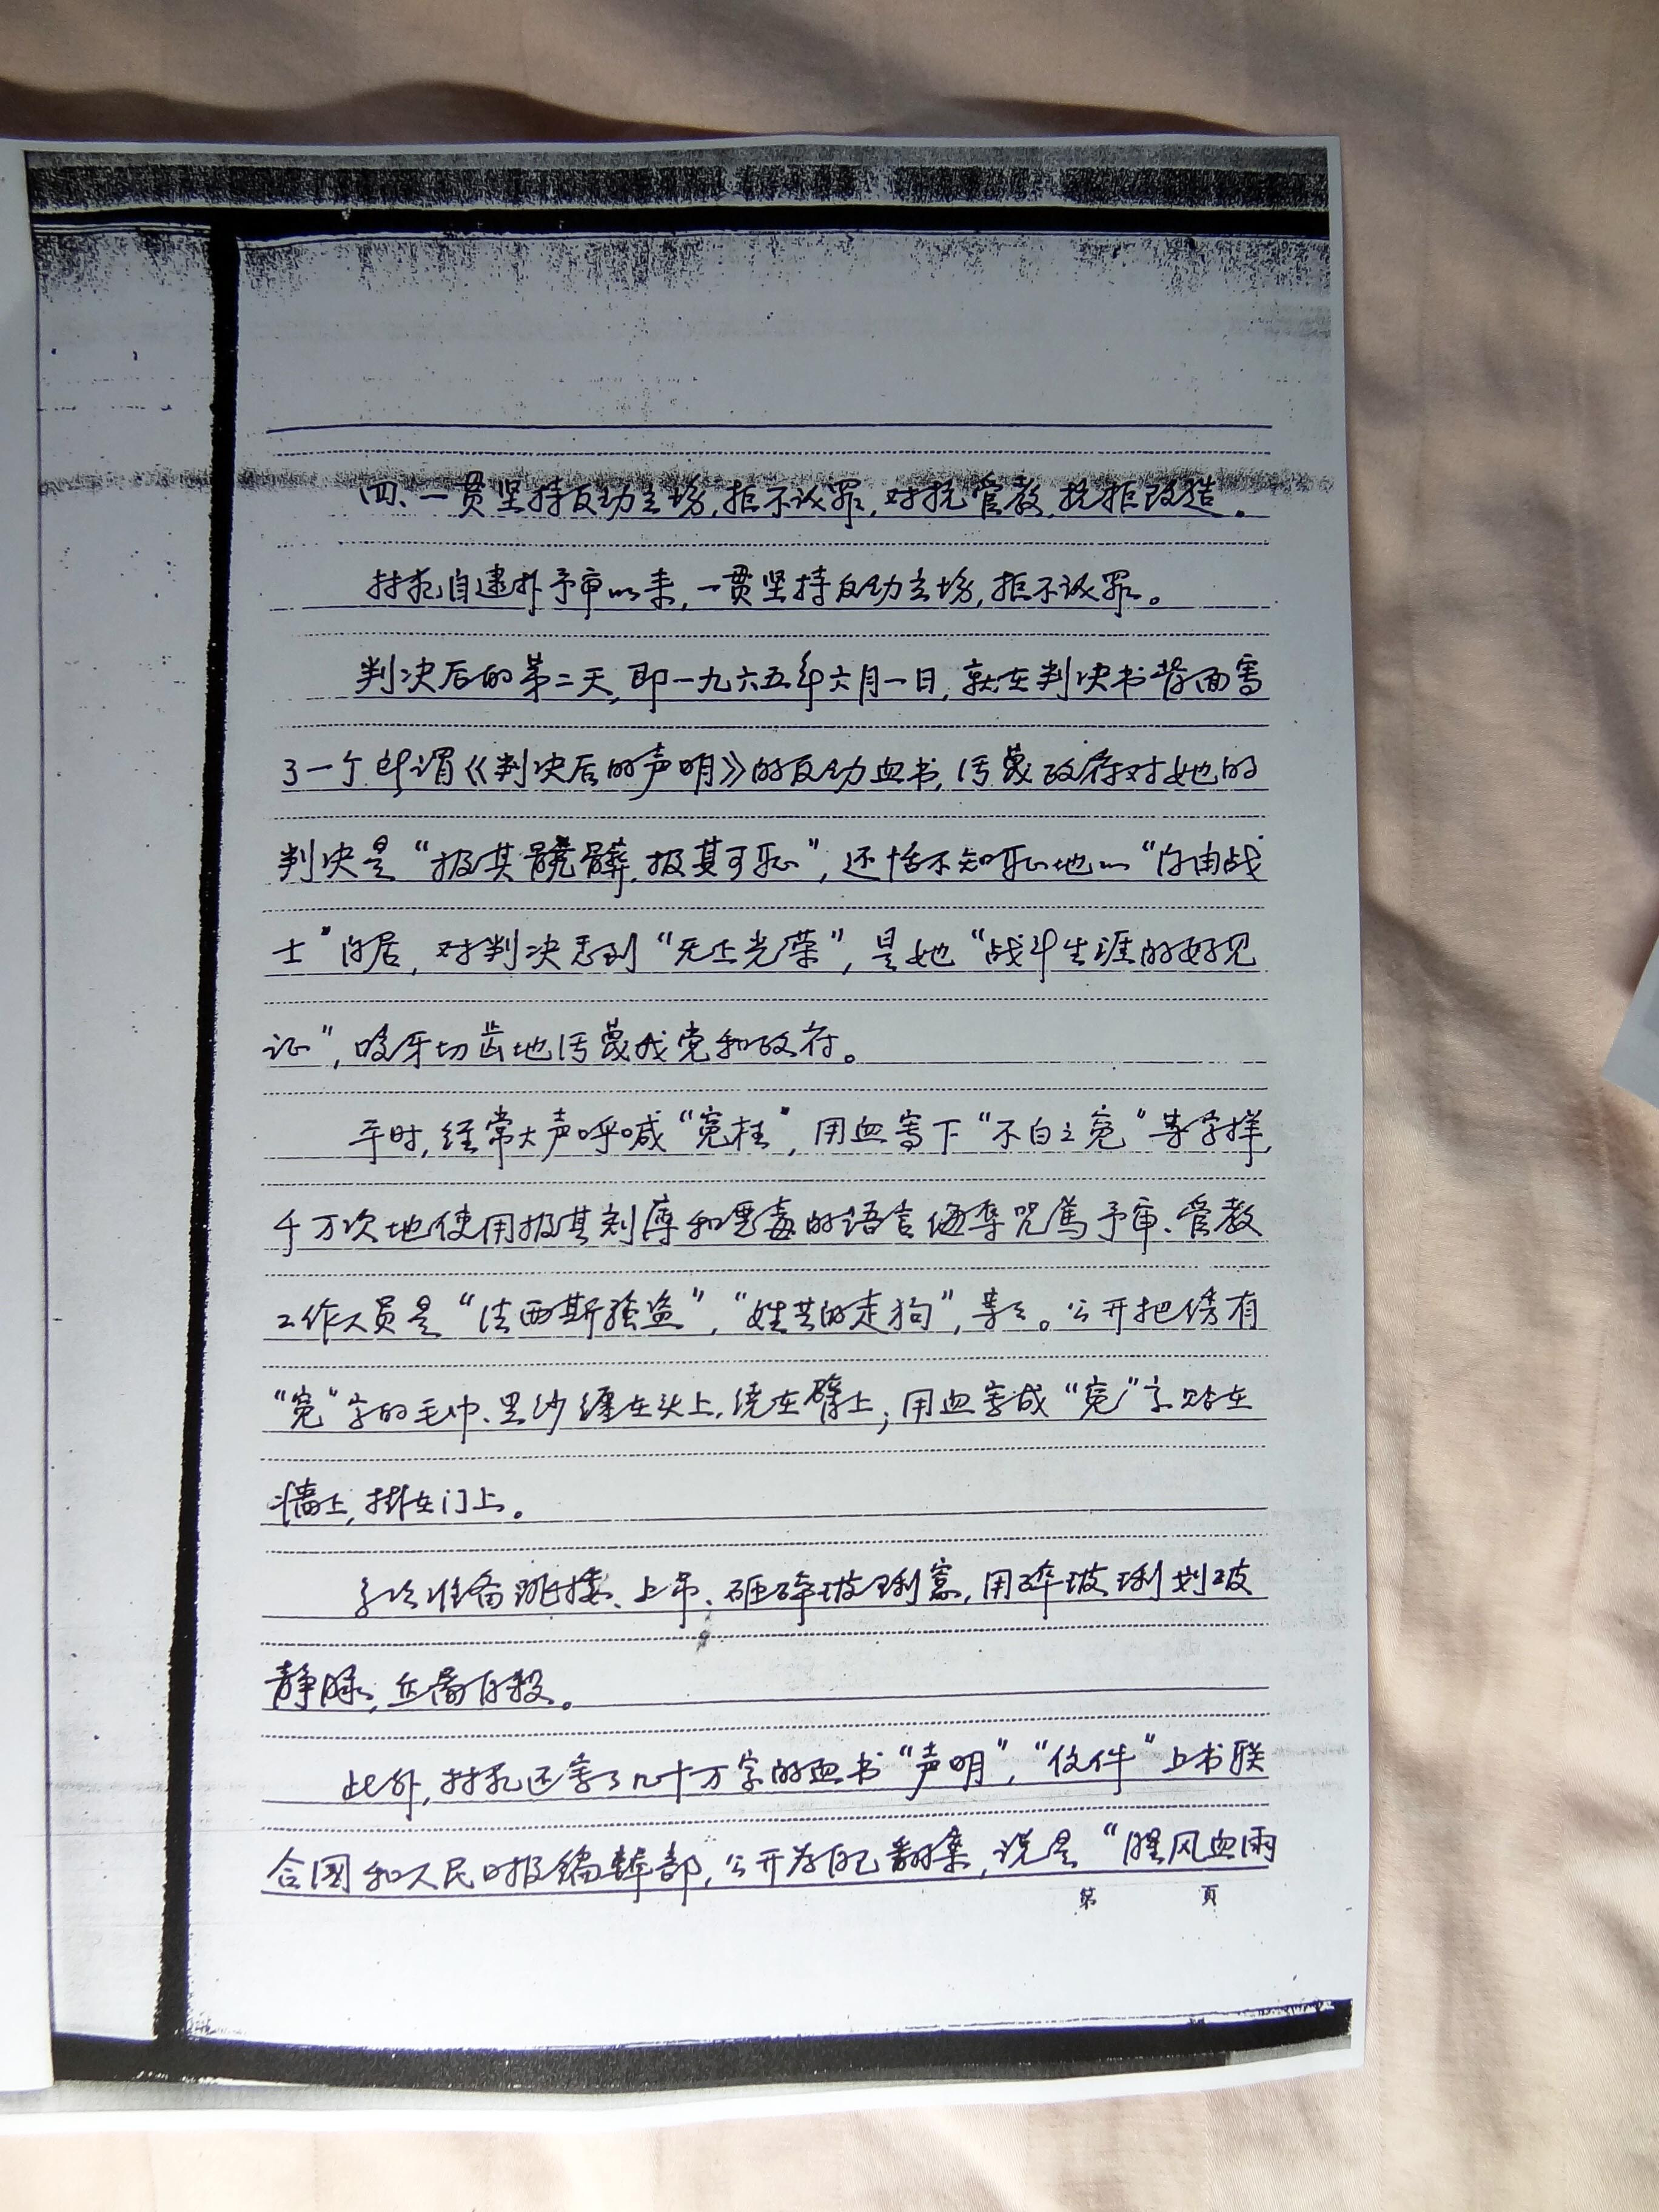 四、一贯坚持反动立场，拒不认罪，对抗管教，抗拒改造。
林犯自逮扑予审以来，一贯坚持反动立场，拒不认罪。
判决后的第二天，即一九六五年六月一日，就在判决书背面写
了一个所谓《判决后的声明》的反动血书，污蔑政府对她的
判决是“极其髒髒，极其可恥”，还恬不知恥地以“自由战
士”自居，对判决感到“无上光荣”，是她“战斗生涯的好见
证”，咬牙切齿地污蔑我党和政府。
平时，经常大声呼喊“冤枉”，用血写下“不白之冤”等字样，
千万次地使用极其刻薄和恶毒的语言侮辱咒骂予审、管教
工作人员是“法西斯强盗”，“姓共的走狗”，等々。公开把绣有
“冤”字的毛巾、黑纱缠在头上，绕在臂上；用血写成“冤”字贴在
墙上，掛在门上。
多次准备跳楼、上吊、砸碎玻璃窗，用碎玻璃划破
静脉，企图自殺。
此外，林犯还写了几十万字的血书“声明”，“伩件”上书联
合國和人民日报编辑部，公开为自己翻案，说是“腥风血雨
第 頁